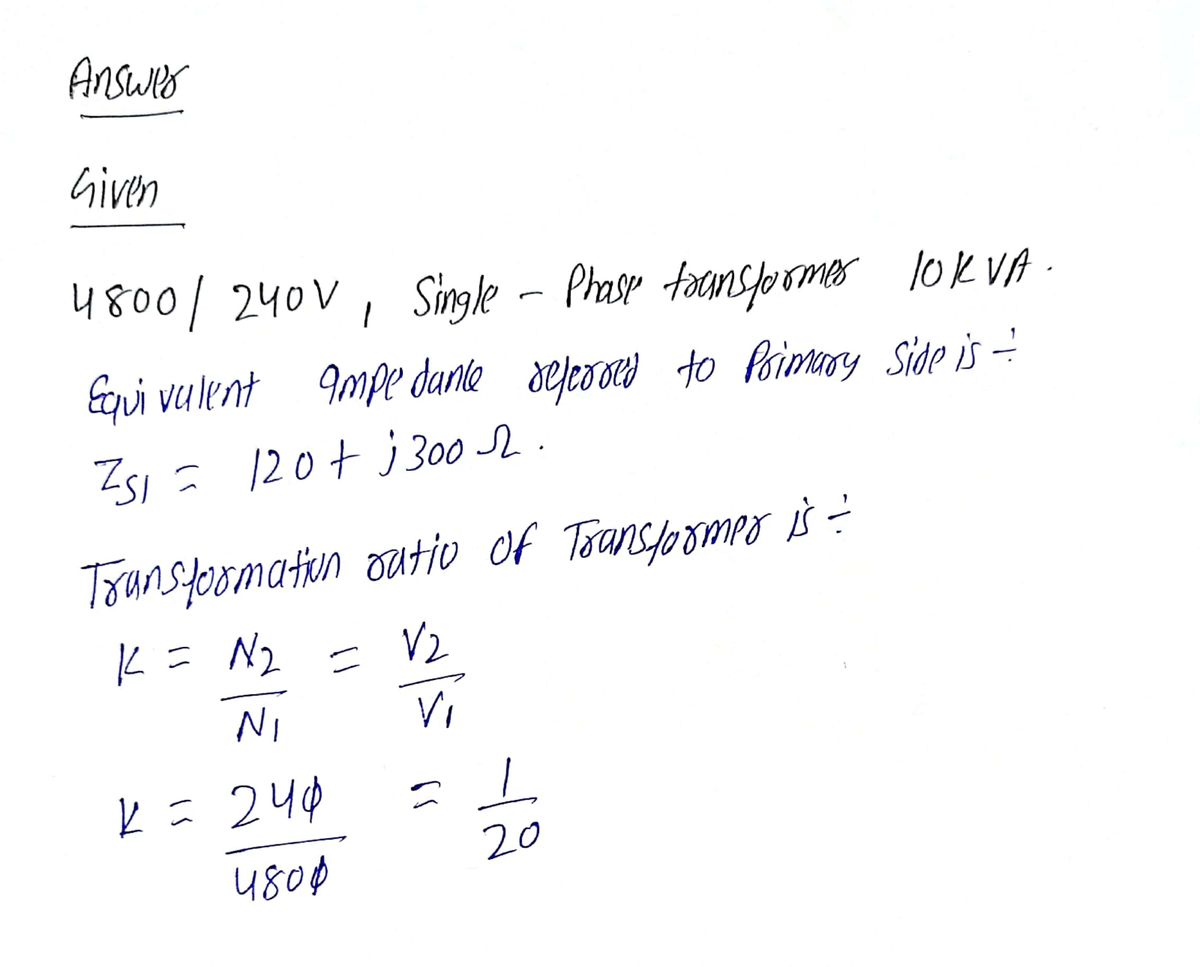 Answer
Given
4800/240V, Single - Phase transformer 10KVA.
Equivalent Impedance referred to Primary Side is ÷
ZS1 = 120 + j300 Ω.
Transformation ratio of Transformer is ÷
K = N2/N1 = V2/V1
K = 240/4800 = 1/20